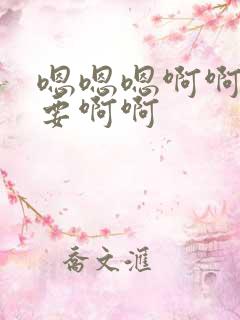 嗯嗯嗯啊啊
要啊啊
喬文滙